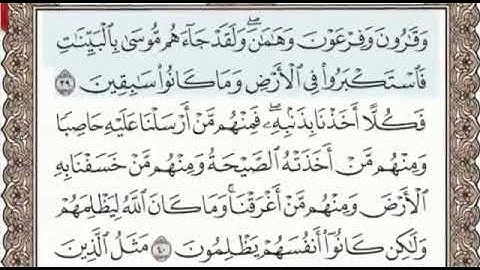 وَقَٰرُونَ وَفِرْعَوْنَ وَهَٰمَٰنَۖ وَلَقَدْ جَآءَهُم مُّوسَىٰ بِٱلْبَيِّنَٰتِ
فَٱسْتَكْبَرُوا۟ فِى ٱلْأَرْضِ وَمَا كَانُوا۟ سَٰبِقِينَ ٣٩
فَكُلًّا أَخَذْنَا بِذَنۢبِهِۦۖ فَمِنْهُم مَّنْ أَرْسَلْنَا عَلَيْهِ حَاصِبًا
وَمِنْهُم مَّنْ أَخَذَتْهُ ٱلصَّيْحَةُ وَمِنْهُم مَّنْ خَسَفْنَا بِهِ
ٱلْأَرْضَ وَمِنْهُم مَّنْ أَغْرَقْنَاۚ وَمَا كَانَ ٱللَّهُ لِيَظْلِمَهُمْ
وَلَٰكِن كَانُوٓا۟ أَنفُسَهُمْ يَظْلِمُونَ ٤٠ مَثَلُ ٱلَّذِينَ